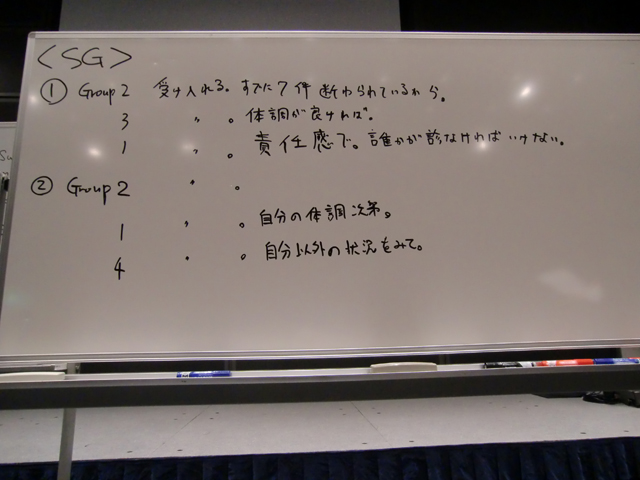 <SG>
① Group 2 受け入れる。すでに7件断わられているから。
3 〃 。体調が良ければ。
1 〃 。責任感で。誰かが診なければいけない。
② Group 2 〃 。
1 〃 。自分の体調次第。
4 〃 。自分以外の状況をみて。
Su